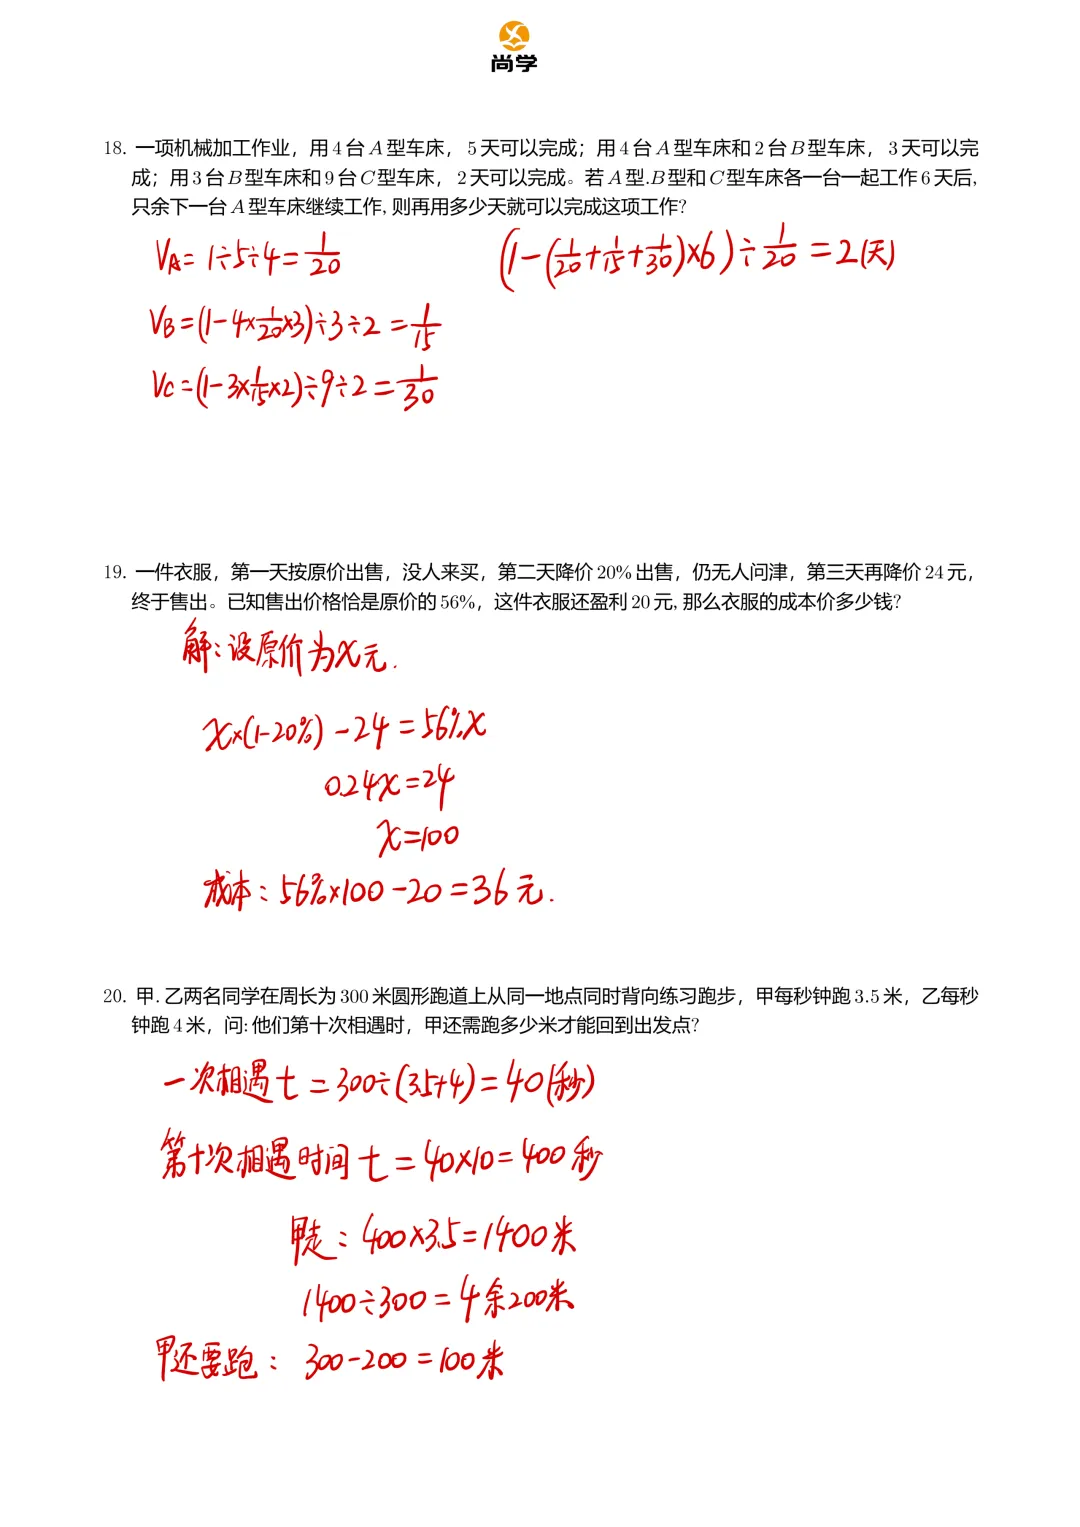 尚学
18. 一项机械加工作业，用4台A型车床，5天可以完成；用4台A型车床和2台B型车床，3天可以完
成；用3台B型车床和9台C型车床，2天可以完成。若A型.B型和C型车床各一台一起工作6天后,
只余下一台A型车床继续工作, 则再用多少天就可以完成这项工作?
V_A = 1÷5÷4 = 1/20
(1-(1/20+1/15+1/30)×6)÷1/20 = 2(天)
V_B = (1-4×1/20×3)÷3÷2 = 1/15
V_C = (1-3×1/15×2)÷9÷2 = 1/30
19. 一件衣服，第一天按原价出售，没人来买，第二天降价20%出售，仍无人问津，第三天再降价24元,
终于售出。已知售出价格恰是原价的56%，这件衣服还盈利20元, 那么衣服的成本价多少钱?
解:设原价为x元.
x×(1-20%)-24=56%x
0.24x=24
x=100
成本: 56%×100-20=36元.
20. 甲.乙两名同学在周长为300米圆形跑道上从同一地点同时背向练习跑步，甲每秒钟跑3.5米，乙每秒
钟跑4米，问: 他们第十次相遇时，甲还需跑多少米才能回到出发点?
一次相遇t=300÷(3.5+4)=40(秒)
第十次相遇时间t=40×10=400秒
甲走: 400×3.5=1400米
1400÷300=4余200米
甲还要跑: 300-200=100米